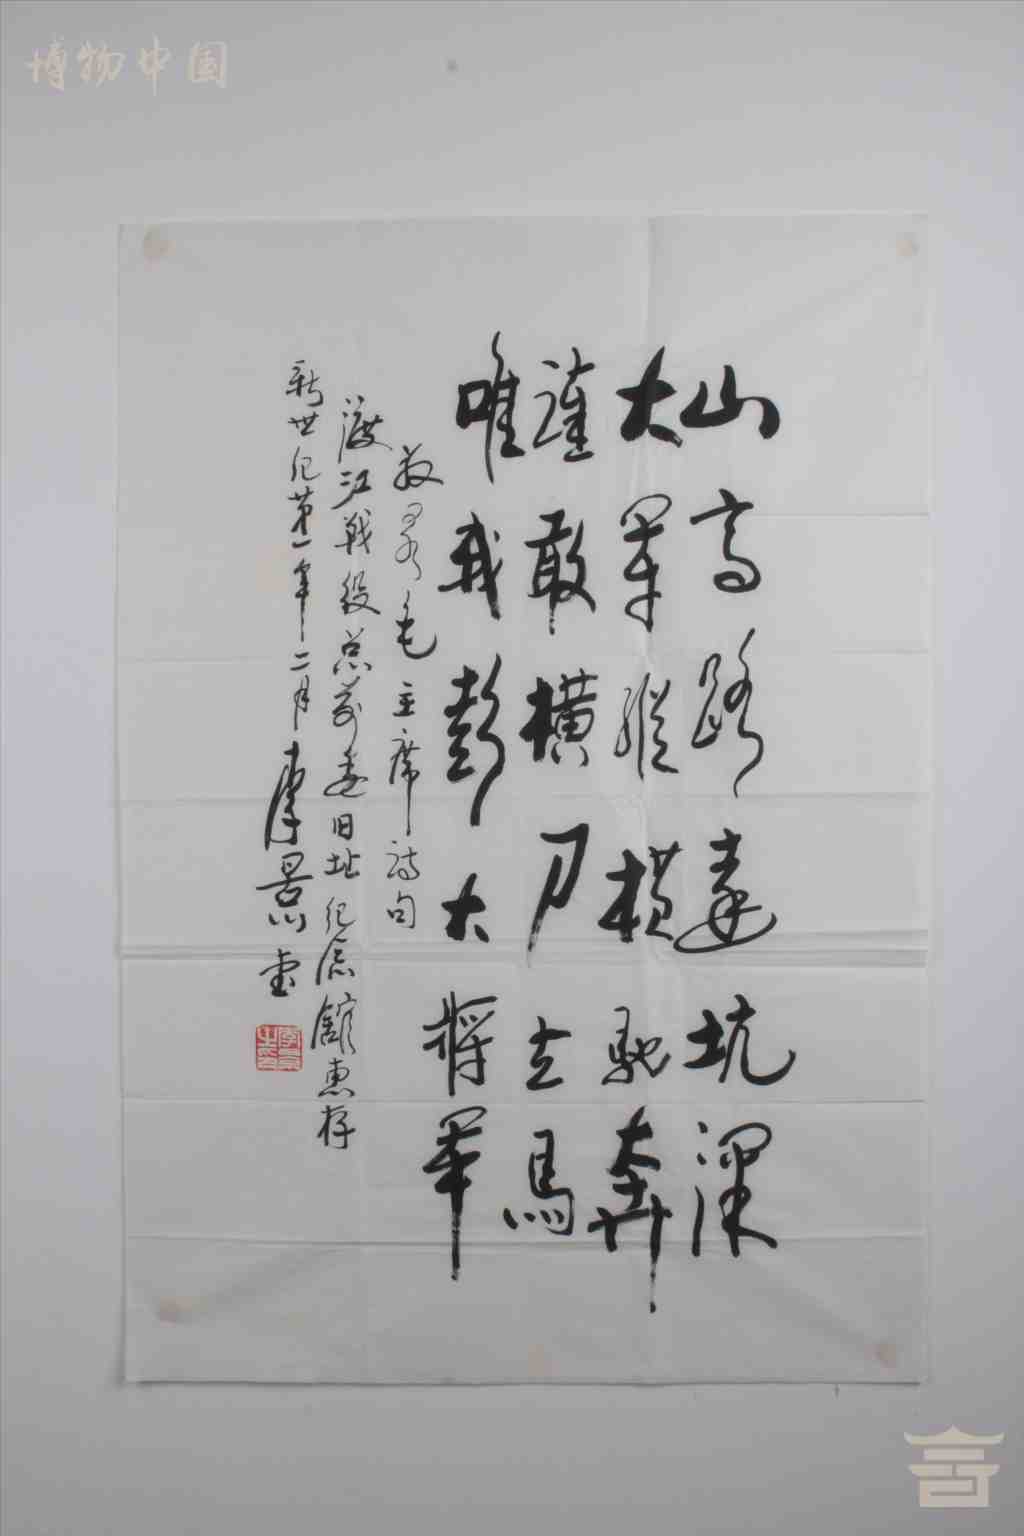 博物中国
山高路遠坑深
大軍縱橫馳奔
誰敢橫刀立馬
唯我彭大將軍
敬录毛主席詩句
渡江戰役总前委旧址纪念館惠存
新世纪第一年二月李景